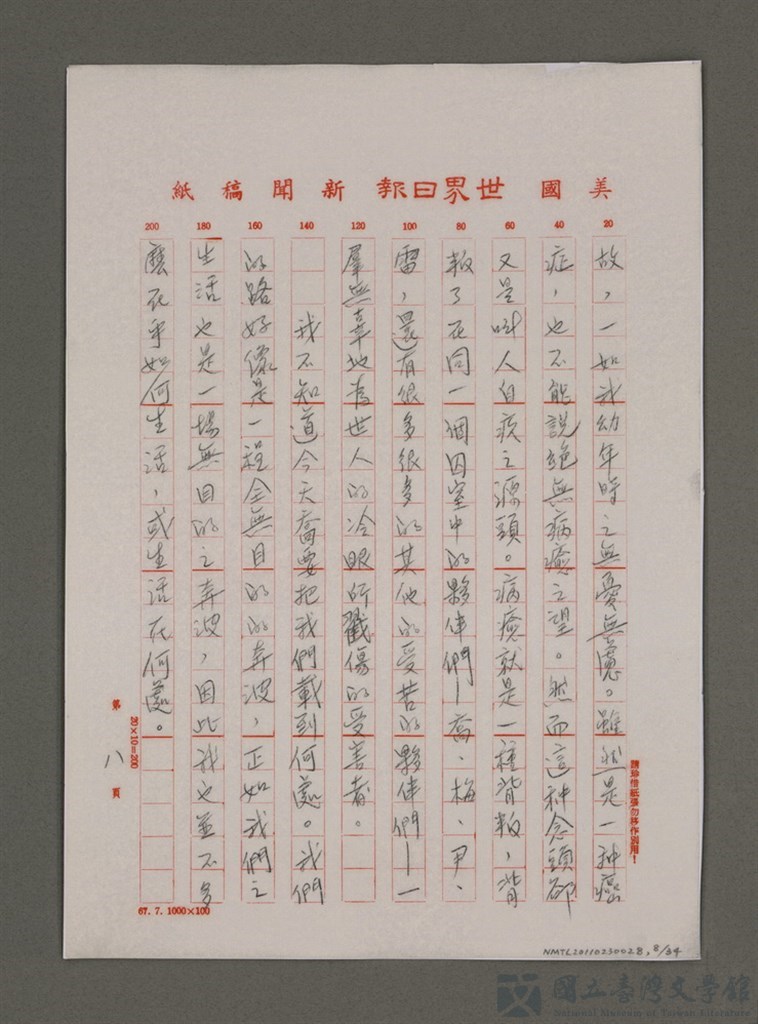 美國世界日報新聞稿紙
20 40 60 80 100 120 140 160 180 200
故，一如我幼年時之無憂無慮。雖然是一种癌
症，也不能說絕無病癒之望。然而這种念頭卻
又是叫人自疚之源頭。病癒就是一種背叛，背
叛了在同一個囚室中的夥伴們—喬、梅、尹、
雷，還有很多很多的其他的受苦的夥伴們—一
羣無辜地為世人的冷眼所戳傷的受害者。
我不知道今天喬要把我們載到何處。我們
的路好像是一程全無目的的奔波，正如我們之
生活也是一場無目的之奔波，因此我也並不多
麼在乎如何生活，或生活在何處。
請珍惜紙張勿移作別用！
20×10=200
第八頁
67.7.1000×100
NMTL20110230028, 8/34
國立臺灣文學館
National Museum of Taiwan Literature